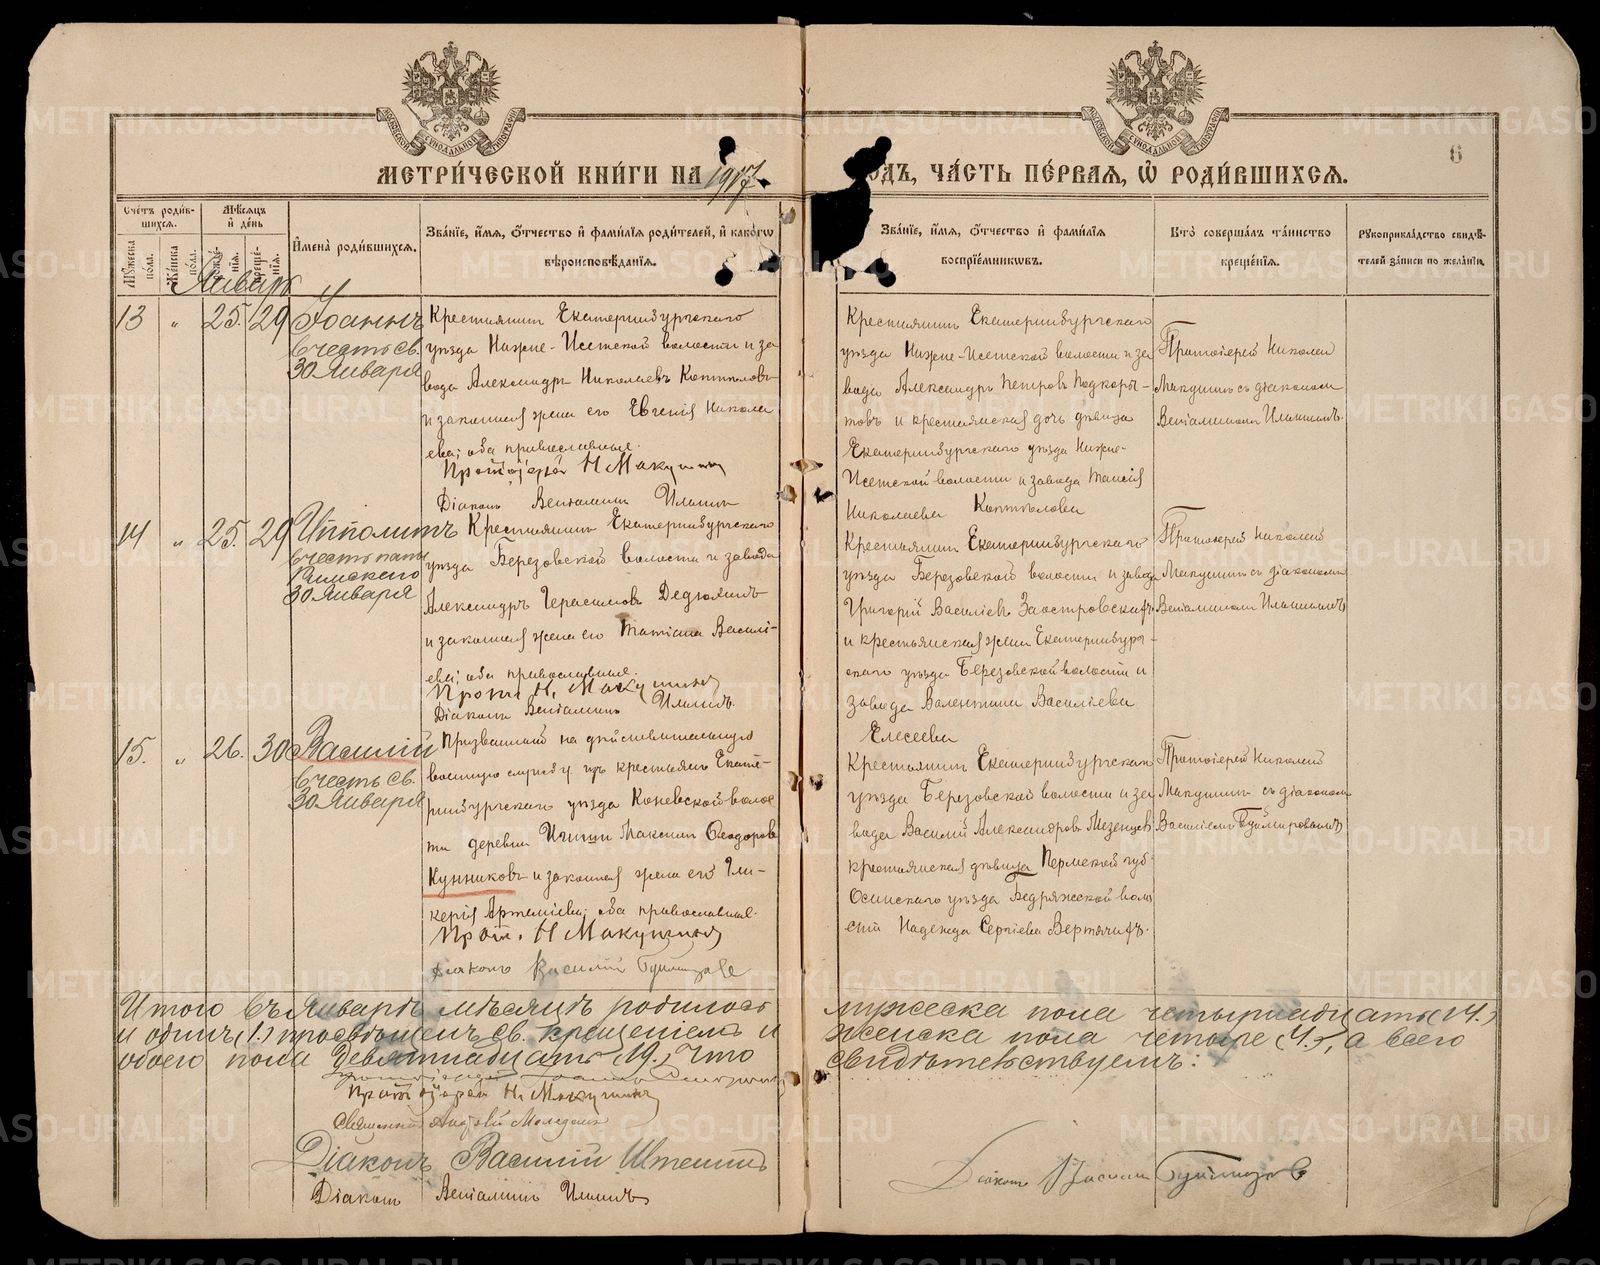 МЕТРИ́ЧЕСКОЙ КНИ́ГИ НА 1917
ОДЪ, ЧА́СТЬ ПЕ́РВАЯ, Ѿ РОДИ́ВШИХСЯ.
6
Сче́тъ роди́вшихся.
Му́жеска по́ла.
Же́нска по́ла.
Мѣ́сяцъ и҆ де́нь
Креще́нїя.
И҆мена̀ роди́вшихся.
Зва́нїе, и҆́мѧ, Ѻ҆́тчество и҆ фами́лїѧ роди́телей, и҆ како́гѡ
вѣроисповѣ́данїѧ.
Зва́нїе, и҆́мѧ, Ѻ҆́тчество и҆ фами́лїѧ
воспрїе́мниковъ.
Кто̀ соверша́лъ та́инство
креще́нїѧ.
Рꙋкоприкла́дство свидѣ́-
телей за́писи по жела́нїю.
Январь
13 „ 25. 29 Іоаннъ
в честь св.
30 Января
Крестьянинъ Екатеринбургскаго
уѣзда Нижне-Исетской волости и за
вода Александръ Николаевъ Коптѣловъ
и законная жена его Евгенія Никола
ева; оба православные.
Протоіерей Н Макушинъ
Діаконъ Веніаминъ Ильинъ
Крестьянинъ Екатеринбургскаго
уѣзда Нижне-Исетской волости и за
вода Александръ Петровъ Подкоры-
товъ и крестьянская дочь дѣвица
Екатеринбургскаго уѣзда Нижне-
Исетской волости и завода Таисія
Николаева Коптѣлова
Протоіерей Николай
Макушинъ съ діакономъ
Веніаминомъ Ильинымъ.
14 „ 25. 29 Ипполитъ
в честь папы
Римскаго
30 Января
Крестьянинъ Екатеринбургскаго
уѣзда Березовской волости и завода
Александръ Герасимовъ Дедюхинъ
и законная жена его Татіана Василі-
ева; оба православные.
Прот. Н. Макушинъ
Діаконъ Веніаминъ Ильинъ.
Крестьянинъ Екатеринбургскаго
уѣзда Березовской волости и завода
Григорій Василіевъ Заостровскихъ
и крестьянская жена Екатеринбург-
скаго уѣзда Березовской волости и
завода Валентина Василіева
Елесеева
Протоіерей Николай
Макушинъ съ діакономъ
Веніаминомъ Ильинымъ
15. „ 26. 30 Василій
в честь св.
30 Января
Призванный на дѣйствительную
военную службу изъ крестьянъ Екате-
ринбургскаго уѣзда Коневской волос
ти деревни Ичиги Максимъ Ѳеодоровъ
Кунниковъ и законная жена его Гли-
керія Артеміева; оба православные.
Прот. Н Макушинъ
Діаконъ Василій
Крестьянинъ Екатеринбургскаго
уѣзда Березовской волости и за
вода Василій Александровъ Мезенцевъ
крестьянская дѣвица Пермской губ.
Осинскаго уѣзда Бедряжской воло
сти Надежда Сергіева Вертячихъ.
Протоіерей Николай
Макушинъ съ діакономъ
Василіемъ
Итого въ Январѣ мѣсяцѣ родилось мужеска пола четырнадцать (14.)
и одинъ (1.) просвѣщенъ св. крещеніемъ и женска пола четыре (4.), а всего
обоего пола девятнадцать (19.) Что свидѣтельствуемъ:
Протоіерей Н. Макушинъ
Священникъ
Діаконъ Василій
Діаконъ Веніаминъ Ильинъ
Діаконъ Василій
METRIKI.GASO-URAL.RU